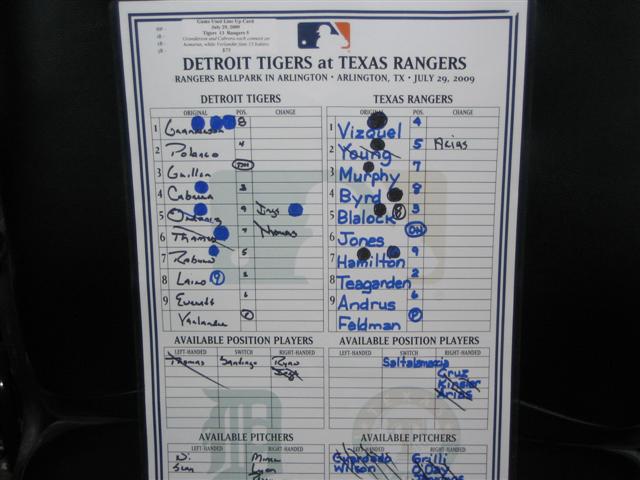 Game Used Line Up Card
July 29, 2009
Tigers 13 Rangers 5
Granderson and Cabrera each connect on
homeruns, while Verlander fans 13 batters
$75
DETROIT TIGERS at TEXAS RANGERS
RANGERS BALLPARK IN ARLINGTON • ARLINGTON, TX • JULY 29, 2009
DETROIT TIGERS
ORIGINAL POS. CHANGE
1 Granderson 8
2 Polanco 4
3 Guillen DH
4 Cabrera 3
5 Ordonez 9
6 Thames 7 Thomas
7 Raburn 5
8 Laird 2
9 Everett 6
Verlander
TEXAS RANGERS
ORIGINAL POS. CHANGE
1 Vizquel 4
2 Young 5 Arias
3 Murphy 7
4 Byrd 8
5 Blalock 3
6 Jones DH
7 Hamilton 9
8 Teagarden 2
9 Andrus 6
Feldman P
AVAILABLE POSITION PLAYERS
LEFT-HANDED SWITCH RIGHT-HANDED
Thomas Santiago Ryan
AVAILABLE POSITION PLAYERS
LEFT-HANDED SWITCH RIGHT-HANDED
Saltalamacchia
Cruz
Kinsler
Arias
AVAILABLE PITCHERS
LEFT-HANDED RIGHT-HANDED
Lyon
AVAILABLE PITCHERS
LEFT-HANDED RIGHT-HANDED
Guardado Grilli
Wilson O'Day